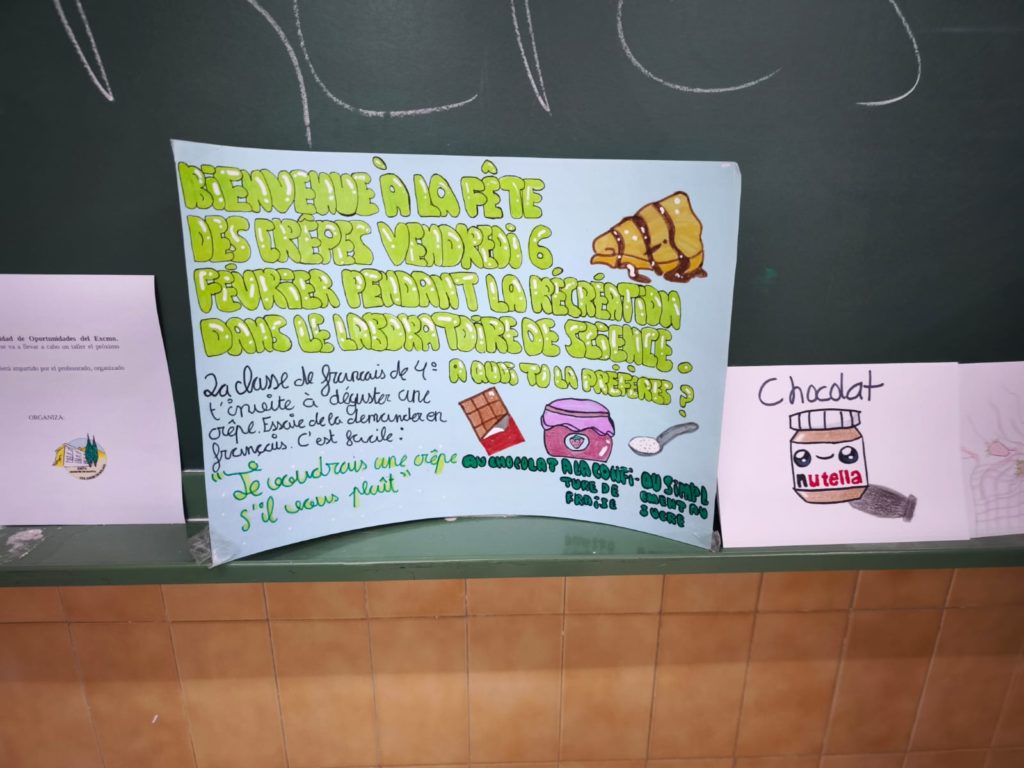 BIENVENUE À LA FÊTE
DES CRÊPES VENDREDI 6
FÉVRIER PENDANT LA RÉCRÉATION
DANS LE LABORATOIRE DE SCIENCE.
A QUOI TU LA PRÉFÈRES ?
La classe de français de 4º
t'invite à déguster une
crêpe. Essaie de la demander en
français. C'est facile :
"Je voudrais une crêpe
s'il vous plaît"
AU CHOCOLAT
A LA CONFI-
TURE DE
FRAISE
OU SIMPL
EMENT AU
SUCRE
Chocolat
nutella
idad de Oportunidades del Excmo.
se va a llevar a cabo un taller el próximo
será impartido por el profesorado, organizado
ORGANIZA: